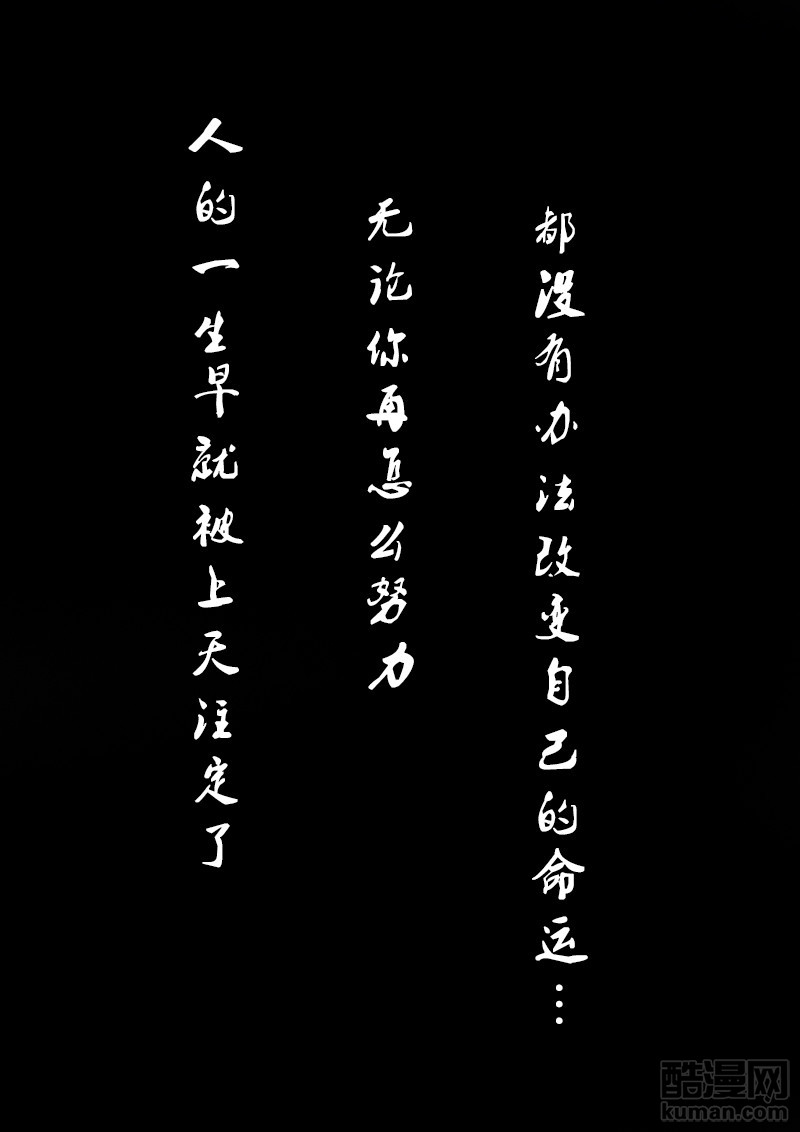 人的一生早就被上天注定了
无论你再怎么努力
都没有办法改变自己的命运…
酷漫网
kuman.com